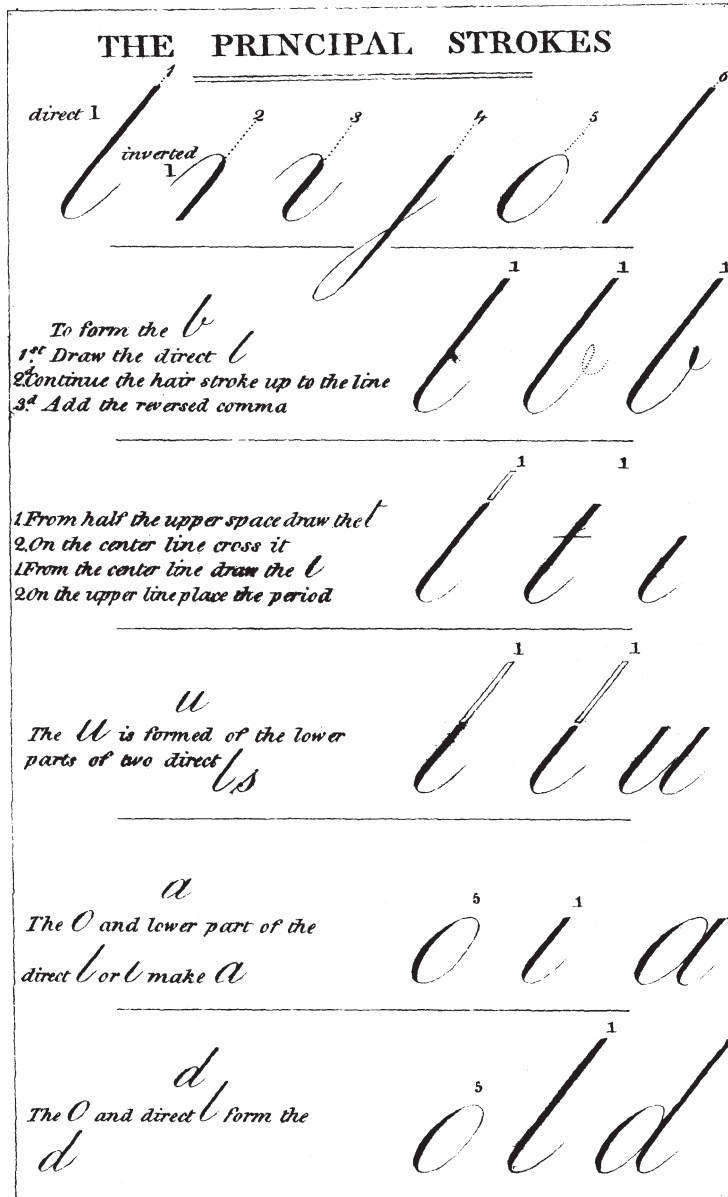 THE PRINCIPAL STROKES
1 2 3 4 5 6
direct 1
inverted
1
1 1 1
To form the b
1st Draw the direct l
2d Continue the hair stroke up to the line
3d Add the reversed comma
l l b
1 1
1 From half the upper space draw the t
2. On the center line cross it
1 From the center line draw the ı
2 On the upper line place the period
l t ı
1 1
u
The u is formed of the lower
parts of two direct ls
l ı u
a
5 1
The O and lower part of the
direct l or t make a
O ı a
d
5 1
The O and direct l form the
d
O l d